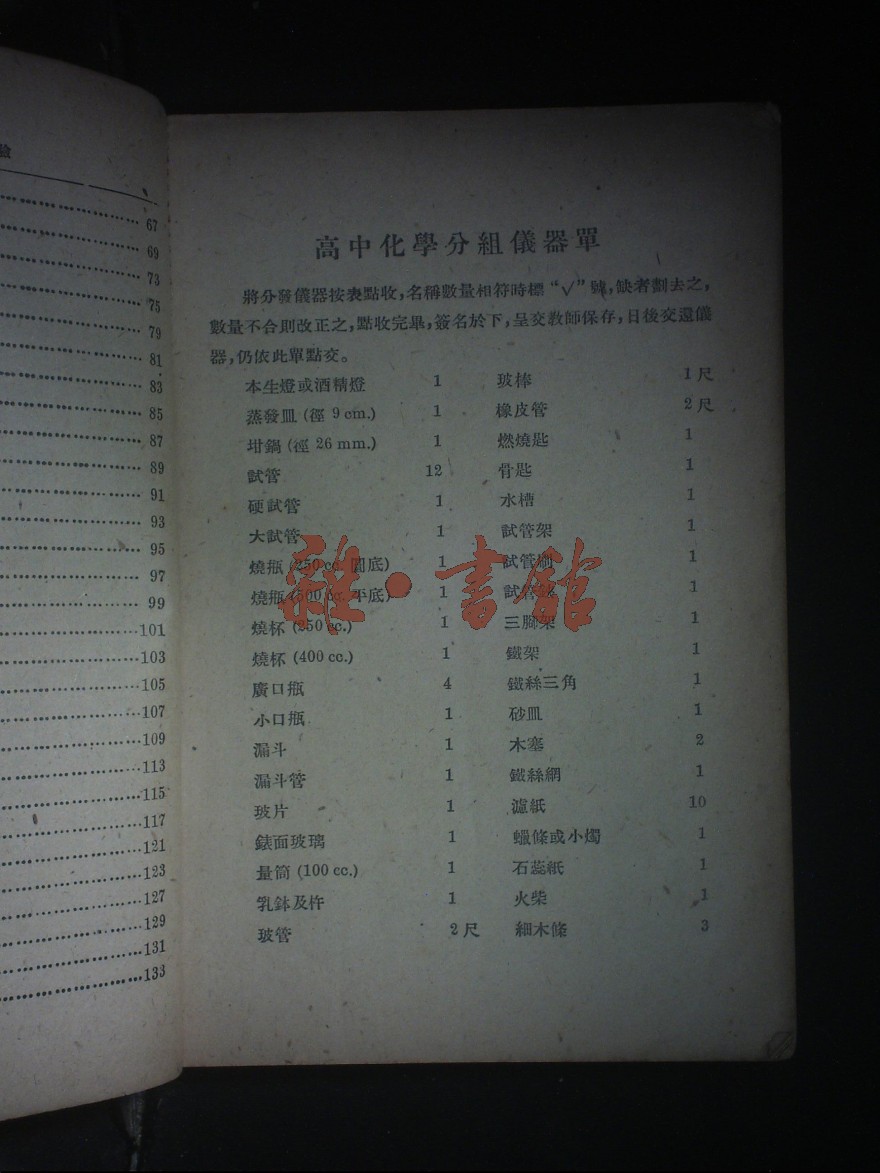 驗
67
69
73
75
79
81
83
85
87
89
91
93
95
97
99
101
103
105
107
109
113
115
117
121
123
127
129
131
133
高中化學分組儀器單
將分發儀器按表點收,名稱數量相符時標“√”號,缺者劃去之,
數量不合則改正之,點收完畢,簽名於下,呈交教師保存,日後交還儀
器,仍依此單點交。
本生燈或酒精燈 1 玻棒 1尺
蒸發皿 (徑 9 cm.) 1 橡皮管 2尺
坩鍋 (徑 26 mm.) 1 燃燒匙 1
試管 12 骨匙 1
硬試管 1 水槽 1
大試管 1 試管架 1
燒瓶 (250 cc. 圓底) 1 試管刷 1
燒瓶 (500 cc. 平底) 1 試管 1
燒杯 (250 cc.) 1 三腳架 1
燒杯 (400 cc.) 1 鐵架 1
廣口瓶 4 鐵絲三角 1
小口瓶 1 砂皿 1
漏斗 1 木塞 2
漏斗管 1 鐵絲網 1
玻片 1 濾紙 10
錶面玻璃 1 蠟條或小燭 1
量筒 (100 cc.) 1 石蕊紙 1
乳鉢及杵 1 火柴 1
玻管 2尺 細木條 3
雜·書館